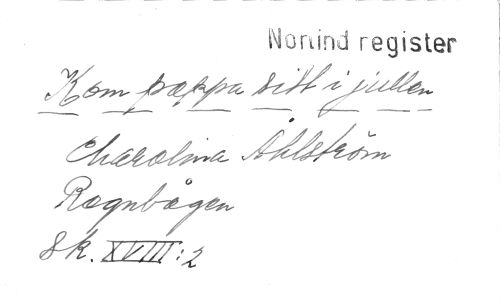 Norrind register
Kom pappa sitt i jullen
Charolina Åhlström
Regnbågen
Sk. XVIII:2